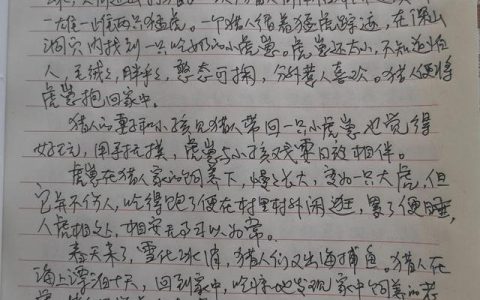 一雄一雌两只猛虎。一个猎人循着猛虎踪迹，在深山
洞穴内找到一只吃奶的小虎崽。虎崽还太小，不知道怕
人，毛绒绒，胖乎乎，憨态可掬，分外惹人喜欢。猎人便将
虎崽抱回家中。
猎人的妻子和小孩见猎人带回一只小虎崽也觉得
好玩，用手抚摸，虎崽与小孩戏耍日夜相伴。
虎崽在猎人家的饲养下，慢慢长大，变为一只大虎，但
它并不伤人，吃得饱了便在村里村外闲逛，累了便睡，
人虎相处，相安无事习以为常。
春天来了，雪化冰消，猎人们又出海捕鱼。猎人在
海上漂泊十天，回到家中，吃惊地发现家中饲养的老